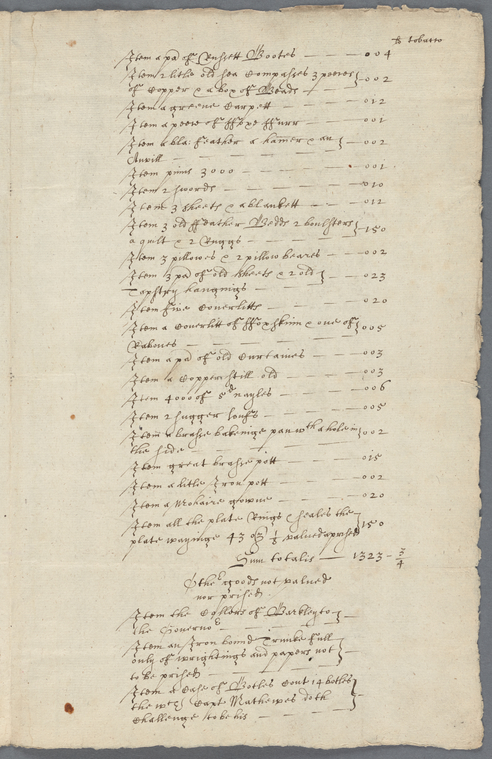 li tobacco
Item a pa of Russett Bootes — 004
Item 2 litle old sea Compasses 3 peeces
of Copper & a box of Beads — 002
Item a greene Carpett — 012
Item a peece of ffoxe ffurr — 001
Item a bla: feather a hamer & an
Anvill — 002
Item pinns 3000 — 001
Item 2 swords — 010
Item 3 sheets & a blankett — 012
Item 3 old ffeather Bedds 2 boulsters
a quilt & 2 Ruggs — 150
Item 3 pillowes & 2 pillow beares — 002
Item 3 pa of old sheets & 2 old
Tapstry hangings — 023
Item five Coverlitts — 020
Item a Coverlitt of ffoxskinn & one of
— 005
Item a pa of old Curtaines — 003
Item a Copper still old — 003
Item 4000 of 5d nayles — 006
Item 2 sugger — 005
Item a brasse bakeinge pan wth a hole in
the side — 002
Item great brasse pott — 015
Item a litle Iron pott — 002
Item a Mohaire gowne — 020
Item all the plate Rings & seales the
plate wayinge 43 oz 1/8 valued & prised 150
Sum totalis — 1323 - 3/4
Othr goods not valued
nor prised
Item the of Barkleyton
the Governor
Item an Iron bound Trunke full
only of wrightings and papers not
to be prised
Item a Case of Botles Cont 14 botles
the wch Capt Mathewes doth
Challenge to be his —